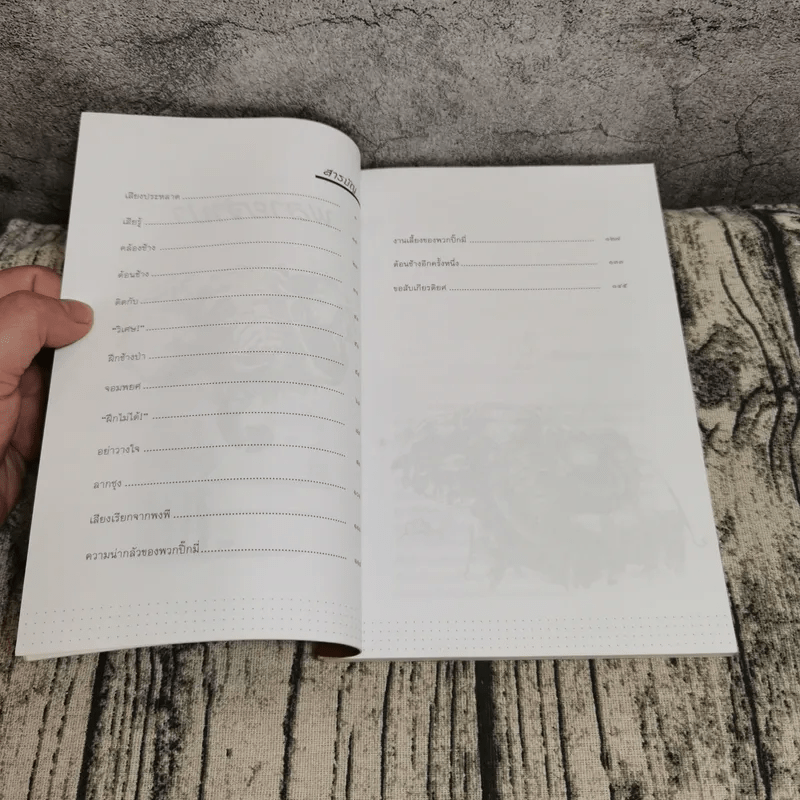 สารบัญ
เสียงประหลาด
เสียรู้
คล้องช้าง
ต้อนช้าง
ติดกับ
"วิเศษ!"
ฝึกช้างป่า
จอมพยศ
"ฝึกไม่ได้!"
อย่าวางใจ
ลากซุง
เสียงเรียกจากพงพี
ความน่ากลัวของพวกปิ๊กมี่
งานเลี้ยงของพวกปิ๊กมี่
ต้อนช้างอีกครั้งหนึ่ง ๑๓๓
ขอสับเกียรติยศ ๑๔๕